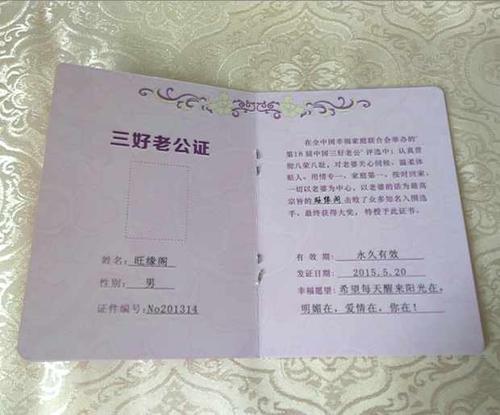 三好老公证
姓名:旺缘阁
性别:男
证件编号:No201314
在全中国幸福家庭联合会举办的“
第18届中国三好老公”评选中:认真贯
彻八荣八耻,对老婆关心伺候,温柔体
贴人,用情专一,家庭第一,按时回家,
一切以老婆为中心,以老婆的话为最高
宗旨的旺缘阁击败了众多知名入围选
手,最终获得大奖,特授予此证书。
有效期:永久有效
发证日期:2015.5.20
幸福愿望:希望每天醒来阳光在,
明媚在,爱情在,你在!